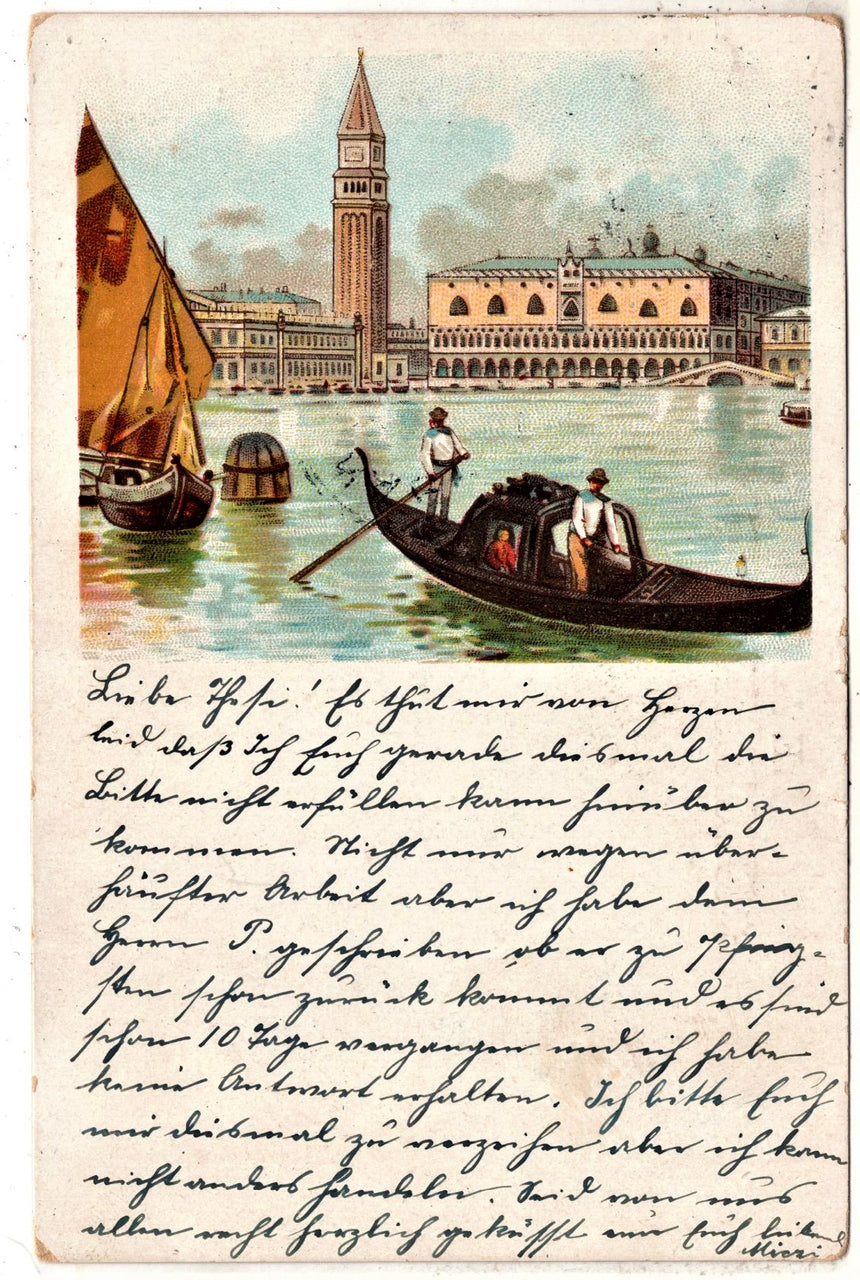 Liebe Thesi! Es thut mir von Herzen
leid daß Ich Euch gerade diesmal die
Bitte nicht erfüllen kann hinüber zu
kommen. Nicht nur wegen über-
häufter Arbeit aber ich habe dem
Herrn P. geschrieben ob er zu Pfing-
sten schon zurück kommt und es sind
schon 10 Tage vergangen und ich habe
keine Antwort erhalten. Ich bitte Euch
mir diesmal zu verzeihen aber ich kann
nicht anders handeln. Seid von uns
allen recht herzlich geküsst Euch
Miezi